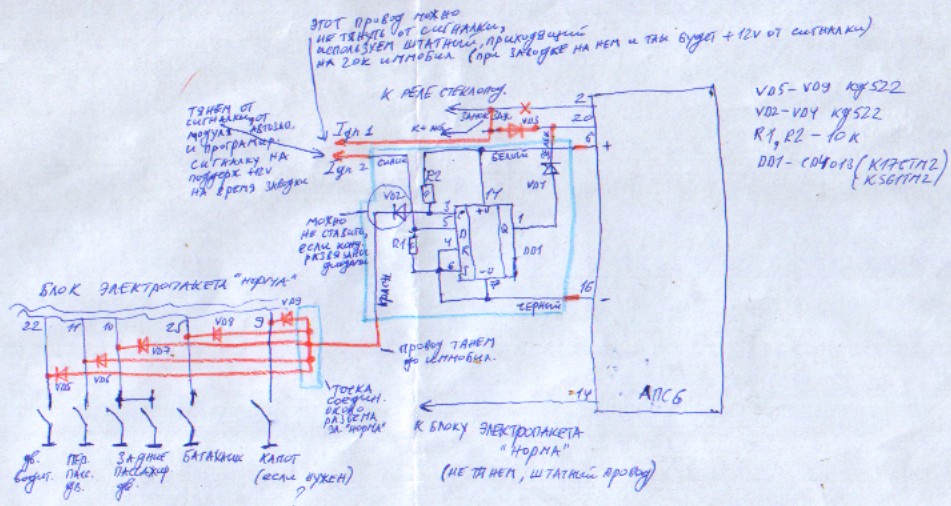 ЭТОТ ПРОВОД МОЖНО
НЕ ТЯНУТЬ ОТ СИГНАЛКИ,
ИСПОЛЬЗУЕМ ШТАТНИЙ, ПРИХОДЯЩИЙ
НА 20К ИММОБИЛ. (ПРИ ЗАВОДКЕ НА НЕМ И ТАК БУДЕТ +12V ОТ СИГНАЛКИ)
К РЕЛЕ СТЕКЛОПОД.
2
20
6
+
VD5-VD9 КД522
VD2-VD4 КД522
R1, R2 - 10К
DD1-CD4013 (К176ТМ2
К561ТМ2)
ТЯНЕМ ОТ
СИГНАЛКИ, ОТ
МОДУЛЯ АВТОЗАП.
И ПРОГРАМИР.
СИГНАЛКУ НА
ПОДДЕРЖ +12V
НА ВРЕМЯ ЗАВОДКИ
ЗАМОК ЗАЖ.
VD3
1
2
СИНИЙ
БЕЛЫЙ
R2
VD1
14
+U
VD2
3
C
5
D
4
R
6
S
-U
7
Q
1
DD1
R1
МОЖНО
НЕ СТАВИТЬ,
ЕСЛИ КОНЦ.
РАЗВЯЗАНЫ
ДИОДАМИ
КРАСН.
ЧЕРНЫЙ
16
-
БЛОК ЭЛЕКТРОПАКЕТА "НОРМА"
22
11
10
25
9
VD9
VD8
VD7
VD6
VD5
ПРОВОД ТЯНЕМ
ДО ИММОБИЛ.
ТОЧКА
СОЕДИН.
ОКОЛО
РАЗЪЕМА
ЗА "НОРМА"
14
АПС6
К БЛОКУ ЭЛЕКТРОПАКЕТА
"НОРМА"
(НЕ ТЯНЕМ, ШТАТНИЙ ПРОВОД)
ДВ.
ВОДИТ.
ПЕР.
ПАСС.
ДВ.
ЗАДНИЕ
ПАССАЖИР
ДВ.
БАГАЖНИК
КАПОТ
(ЕСЛИ НУЖЕН)
?